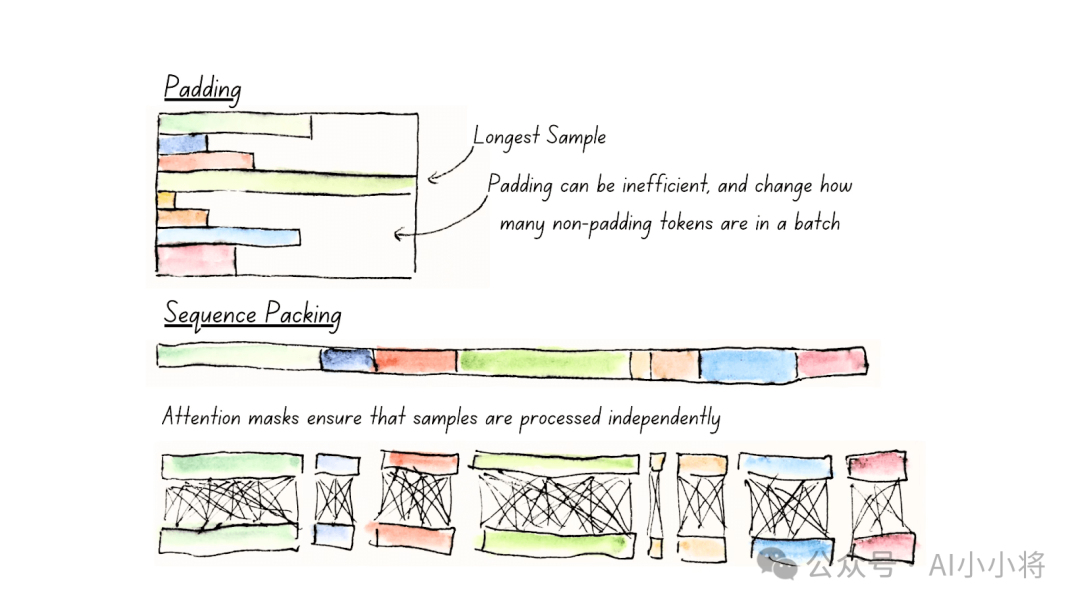 Padding
Longest Sample
Padding can be inefficient, and change how
many non-padding tokens are in a batch
Sequence Packing
Attention masks ensure that samples are processed independently
公众号 · AI小小将